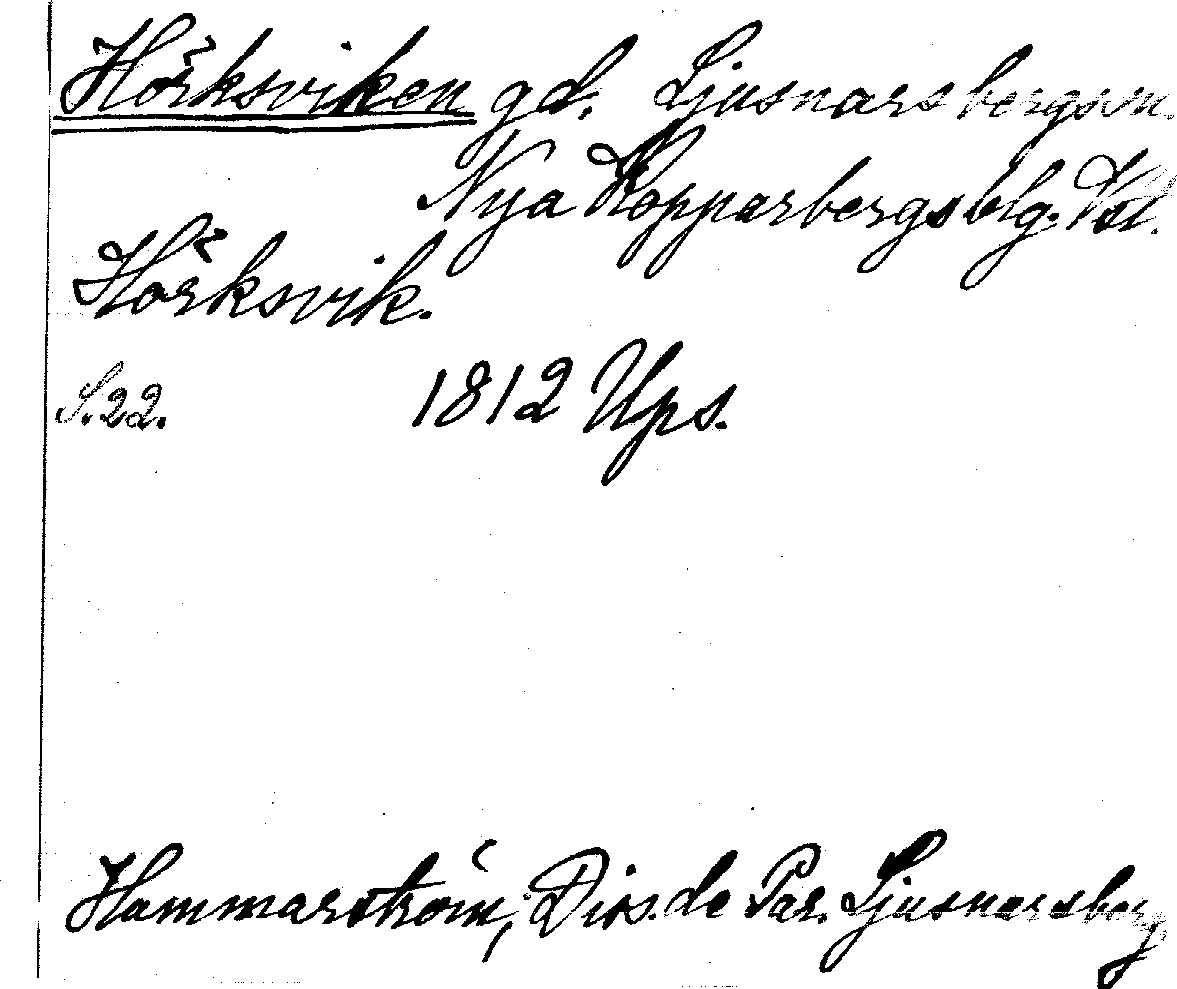 Hörksviken gd. Ljusnarsbergs sn.
Nya Kopparbergs blg. Vstl.
Hörksvik.
S. 22. 1812 Ups.
Hammarström, Diss. de Par. Ljusnarsberg